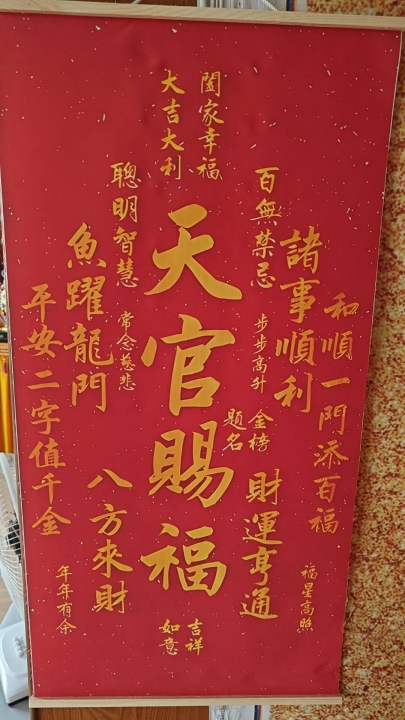 闔家幸福
大吉大利
和順一門添百福
福星高照
諸事順利
百無禁忌
步步高升
金榜
題名
財運亨通
天官賜福
吉祥
如意
聰明智慧
常念慈悲
八方來財
魚躍龍門
平安二字值千金
年年有余